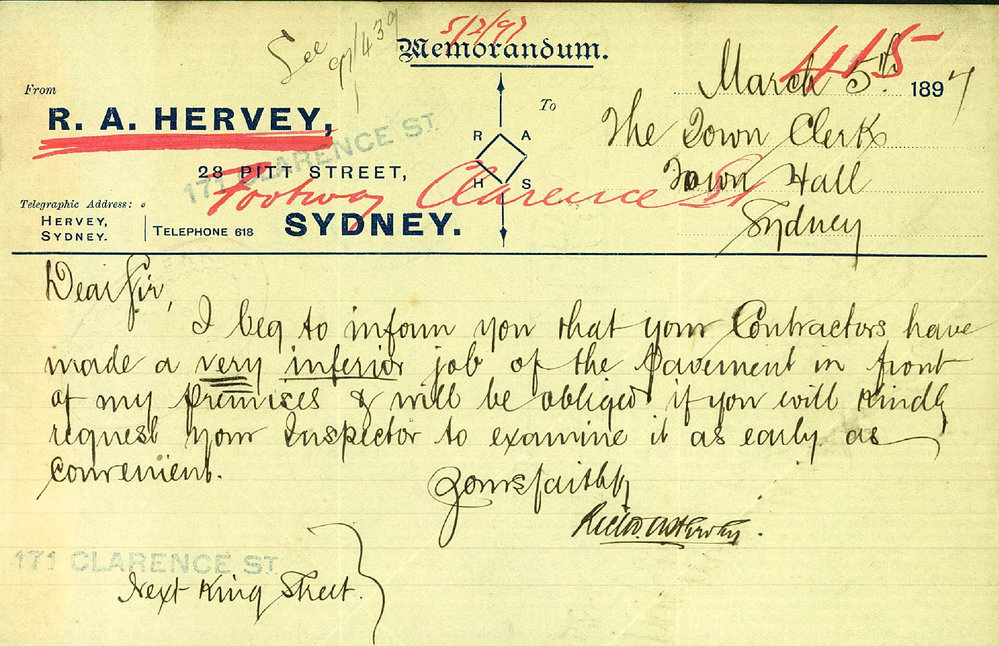 See 97/439
5/2/97
Memorandum.
415
March 5th 1897
From
R. A. HERVEY,
To
The Town Clerk
R A
H S
171 CLARENCE ST.
28 PITT STREET,
Town Hall
Footway Clarence St
Telegraphic Address:
HERVEY,
SYDNEY.
TELEPHONE 618
SYDNEY.
Sydney
Dear Sir,
I beg to inform you that your Contractors have
made a very inferior job of the Pavement in front
of my Premises & will be obliged if you will Kindly
request your Inspector to examine it as early as
convenient.
Yours faithfy
171 CLARENCE ST
Next King Street.